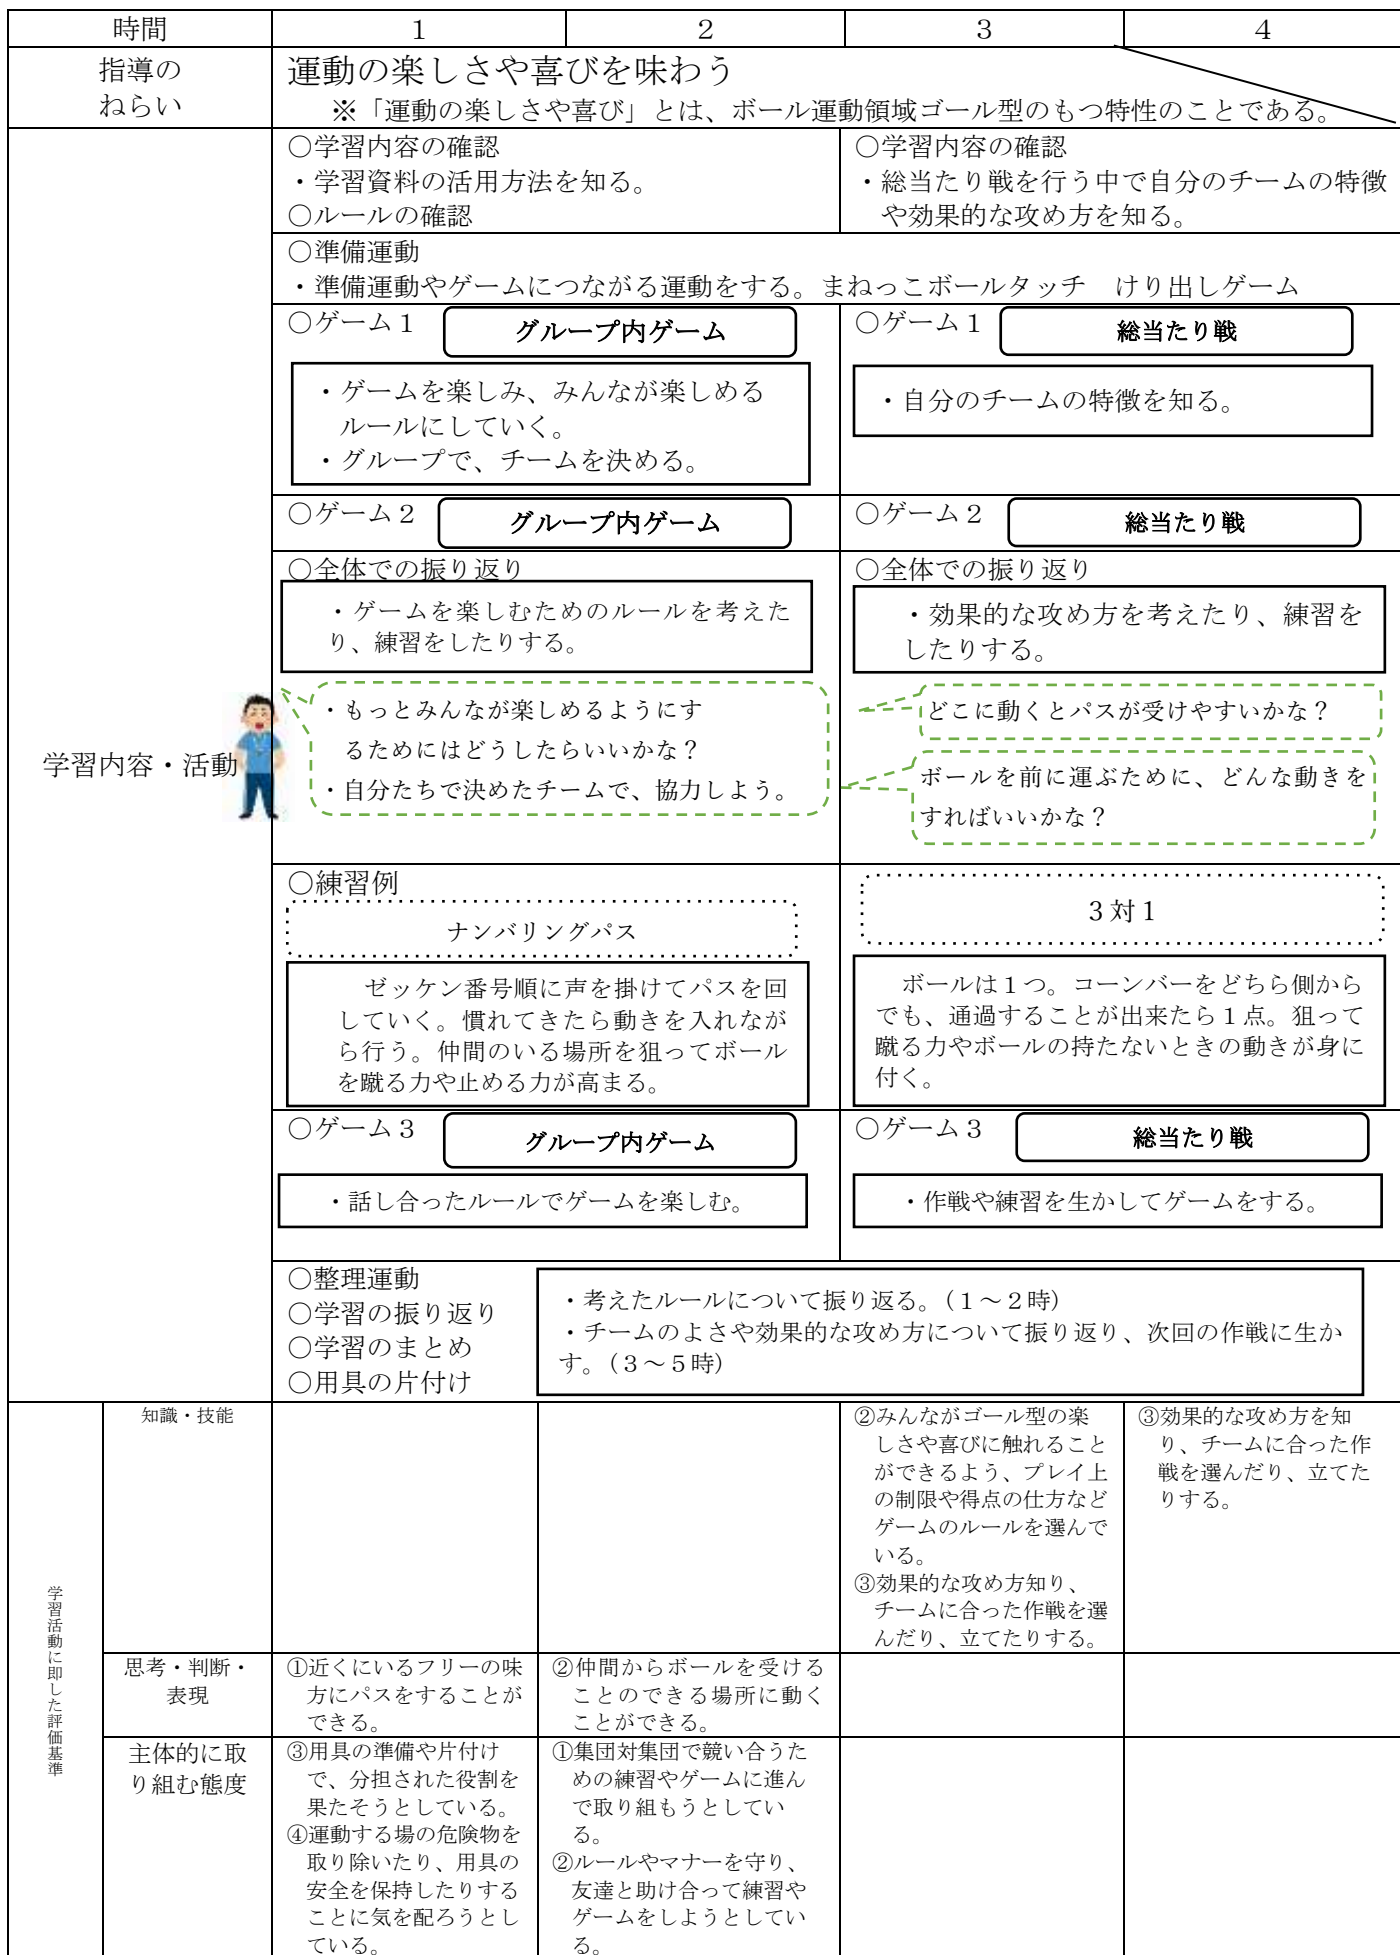 時間 1 2 3 4
指導の
ねらい
運動の楽しさや喜びを味わう
※「運動の楽しさや喜び」とは、ボール運動領域ゴール型のもつ特性のことである。
学習内容・活動
○学習内容の確認
・学習資料の活用方法を知る。
○ルールの確認
○学習内容の確認
・総当たり戦を行う中で自分のチームの特徴
や効果的な攻め方を知る。
○準備運動
・準備運動やゲームにつながる運動をする。まねっこボールタッチ　けり出しゲーム
○ゲーム1 グループ内ゲーム
・ゲームを楽しみ、みんなが楽しめる
ルールにしていく。
・グループで、チームを決める。
○ゲーム1 総当たり戦
・自分のチームの特徴を知る。
○ゲーム2 グループ内ゲーム
○ゲーム2 総当たり戦
○全体での振り返り
・ゲームを楽しむためのルールを考えた
り、練習をしたりする。
・もっとみんなが楽しめるようにす
るためにはどうしたらいいかな？
・自分たちで決めたチームで、協力しよう。
○全体での振り返り
・効果的な攻め方を考えたり、練習を
したりする。
どこに動くとパスが受けやすいかな？
ボールを前に運ぶために、どんな動きを
すればいいかな？
○練習例
ナンバリングパス
ゼッケン番号順に声を掛けてパスを回
していく。慣れてきたら動きを入れなが
ら行う。仲間のいる場所を狙ってボール
を蹴る力や止める力が高まる。
3対1
ボールは1つ。コーンバーをどちら側から
でも、通過することが出来たら1点。狙って
蹴る力やボールの持たないときの動きが身に
付く。
○ゲーム3 グループ内ゲーム
・話し合ったルールでゲームを楽しむ。
○ゲーム3 総当たり戦
・作戦や練習を生かしてゲームをする。
○整理運動
○学習の振り返り
○学習のまとめ
○用具の片付け
・考えたルールについて振り返る。（1～2時）
・チームのよさや効果的な攻め方について振り返り、次回の作戦に生か
す。（3～5時）
学習活動に即した評価基準
知識・技能
②みんながゴール型の楽
しさや喜びに触れること
ができるよう、プレイ上
の制限や得点の仕方など
ゲームのルールを選んで
いる。
③効果的な攻め方知り、
チームに合った作戦を選
んだり、立てたりする。
③効果的な攻め方を知
り、チームに合った作
戦を選んだり、立てた
りする。
思考・判断・
表現
①近くにいるフリーの味
方にパスをすることが
できる。
②仲間からボールを受ける
ことのできる場所に動く
ことができる。
主体的に取
り組む態度
③用具の準備や片付け
で、分担された役割を
果たそうとしている。
④運動する場の危険物を
取り除いたり、用具の
安全を保持したりする
ことに気を配ろうとし
ている。
①集団対集団で競い合うた
めの練習やゲームに進ん
で取り組もうとしてい
る。
②ルールやマナーを守り、
友達と助け合って練習や
ゲームをしようとしてい
る。